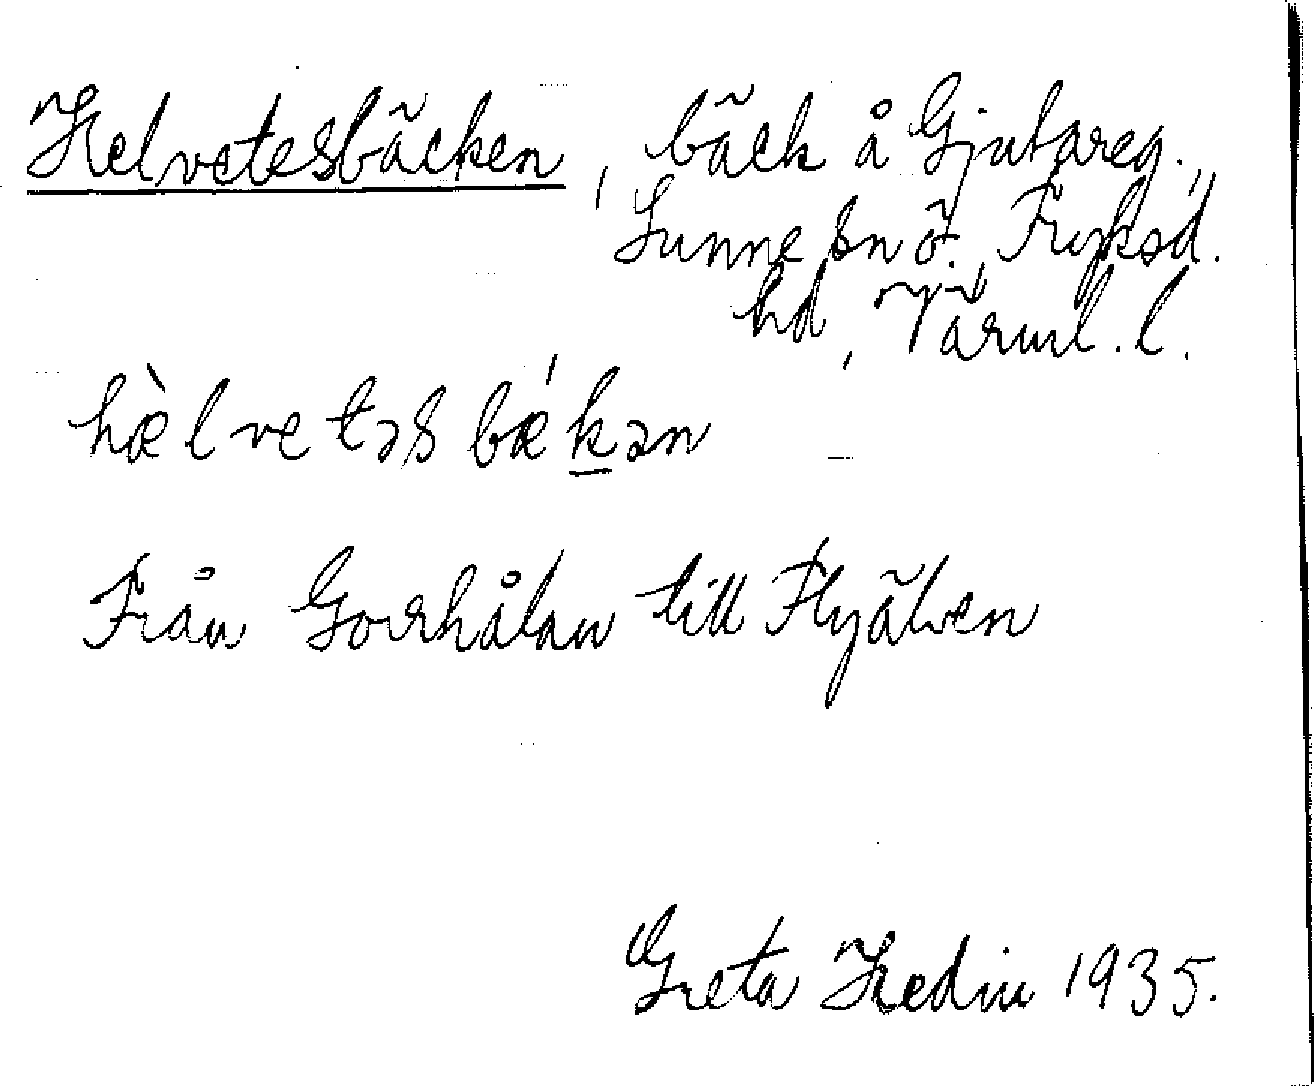 Helvetesbäcken, bäck å Gjutareg.,
Sunne sn ö. Fryksd.
hd, Värml. l.
hæ̀lvetəsbǽkən
Från Gorrhålan till Flyälven
Greta Hedin 1935.